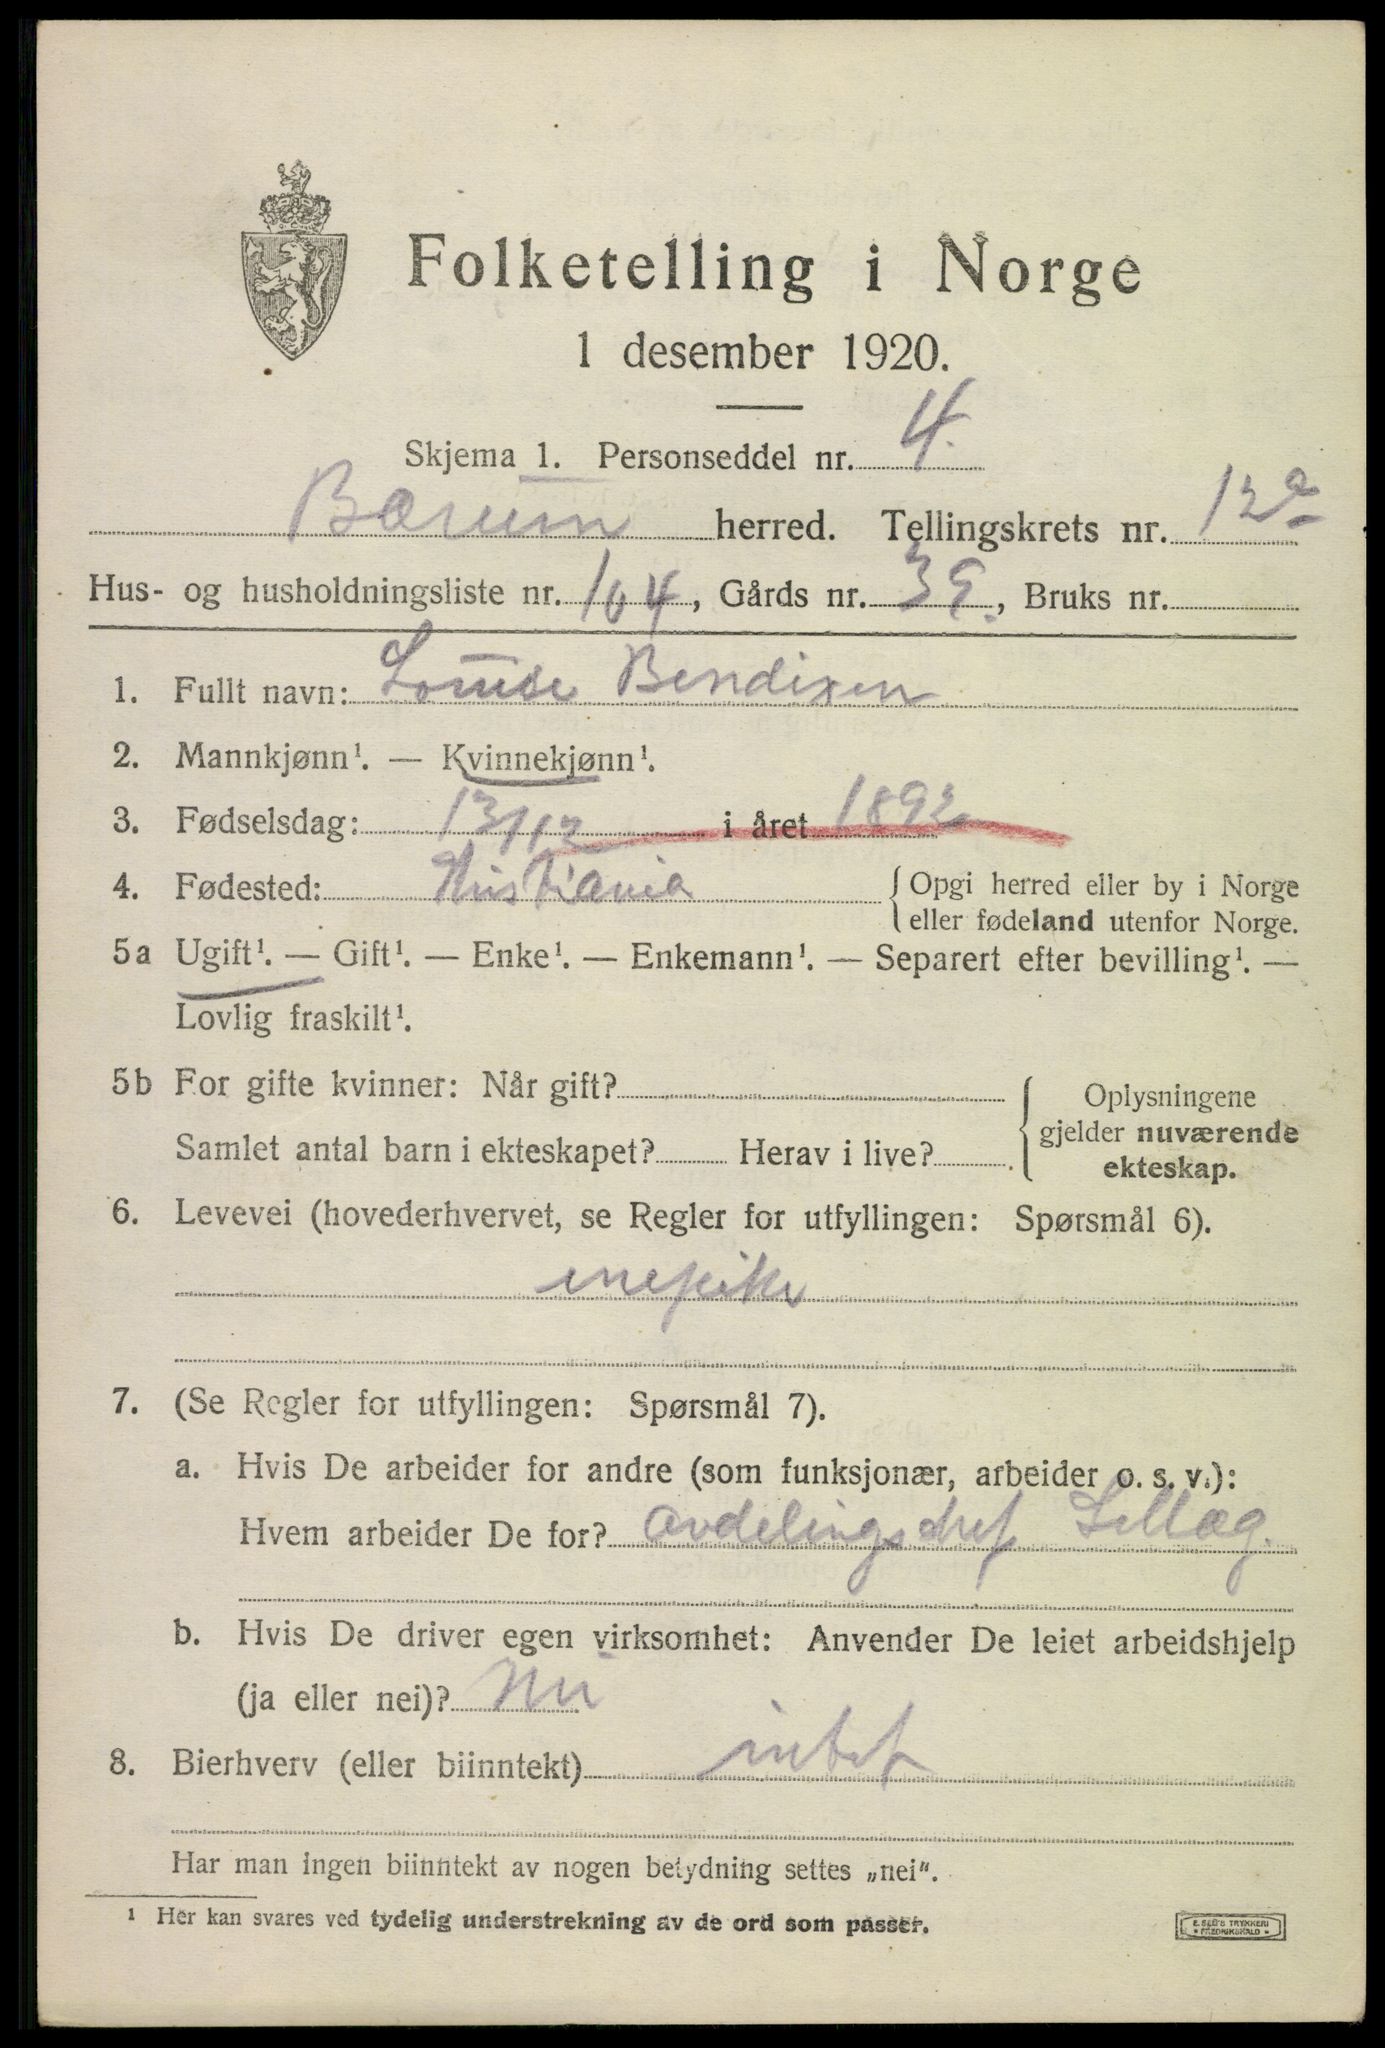 Folketelling i Norge
1 desember 1920.
Skjema 1. Personseddel nr. 4.
Bærum herred. Tellingskrets nr. 12a
Hus- og husholdningsliste nr. 104, Gårds nr. 39., Bruks nr.
1. Fullt navn: Louise Bendixen
2. Mannkjønn¹. — Kvinnekjønn¹.
3. Fødselsdag: 13/12 i året 1892
4. Fødested: Kristiania {Opgi herred eller by i Norge
eller fødeland utenfor Norge.
5a Ugift¹. — Gift¹. — Enke¹. — Enkemann¹. — Separert efter bevilling¹. —
Lovlig fraskilt¹.
5b For gifte kvinner: Når gift? { Oplysningene
gjelder nuværende
Samlet antal barn i ekteskapet? Herav i live?
ekteskap.
6. Levevei (hovederhvervet, se Regler for utfyllingen: Spørsmål 6).
enepike
7. (Se Regler for utfyllingen: Spørsmål 7).
a. Hvis De arbeider for andre (som funksjonær, arbeider o. s. v.):
Hvem arbeider De for? avdelingschef
b. Hvis De driver egen virksomhet: Anvender De leiet arbeidshjelp
(ja eller nei)? Nei
8. Bierhverv (eller biinntekt) intet
Har man ingen biinntekt av nogen betydning settes „nei“.
¹ Her kan svares ved tydelig understrekning av de ord som passer.
E. SEM'S TRYKKERI
FREDRIKSHALD